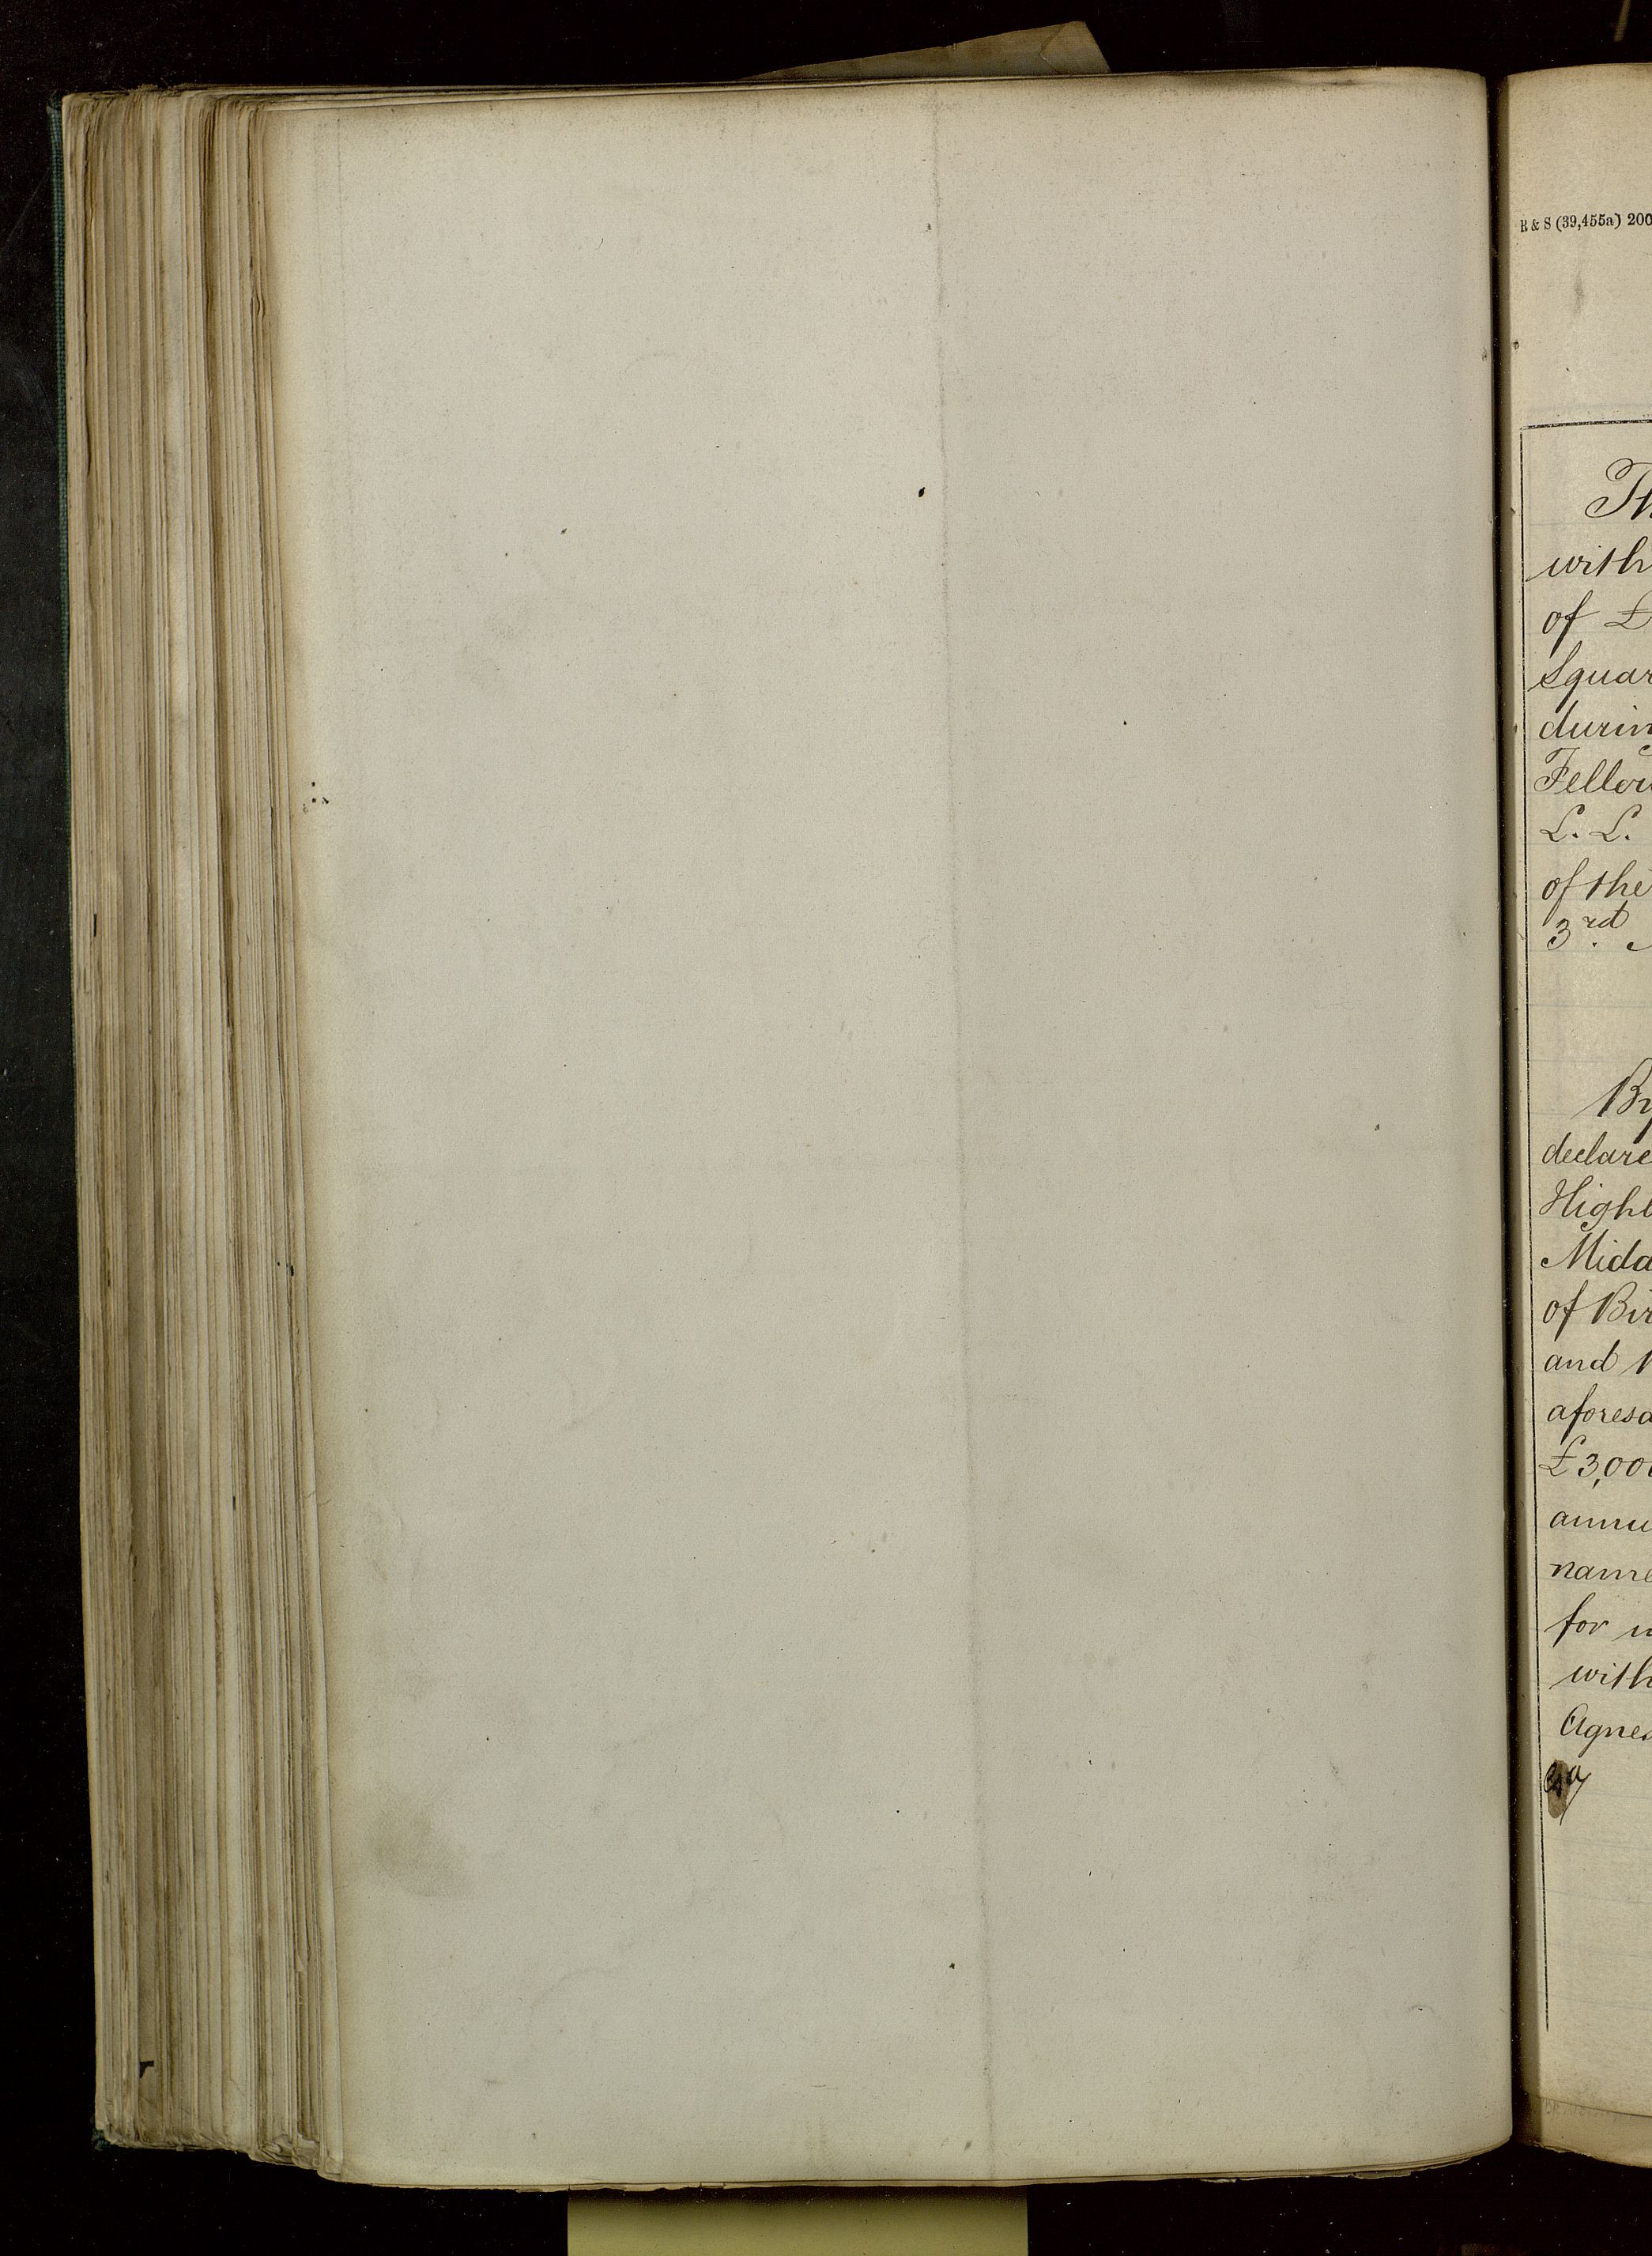 R & S (39,455a) 200
Th
with
of £
Squar
durin
Fellow
L. L.
of the
3rd.
By
declare
Highb
Midd
of Bir
and
aforesa
£3,000
annu
name
for
with
Agnes